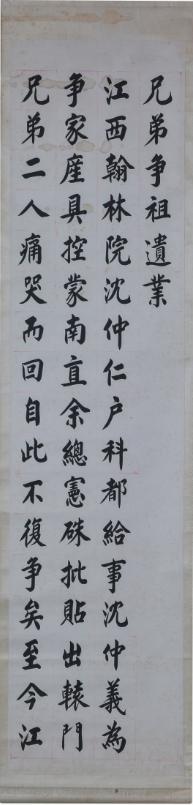 兄弟争祖遺業
江西翰林院沈仲仁户科都給事沈仲義為
争家産具控蒙南直余總憲硃批貼出轅門
兄弟二人痛哭而回自此不復争矣至今江